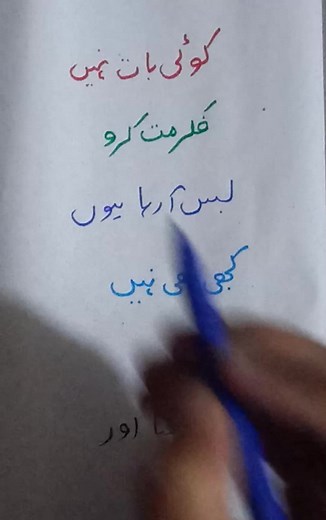 کوئی بات نہیں
فکر مت کرو
بس آ رہا ہوں
کبھی بھی نہیں
اور